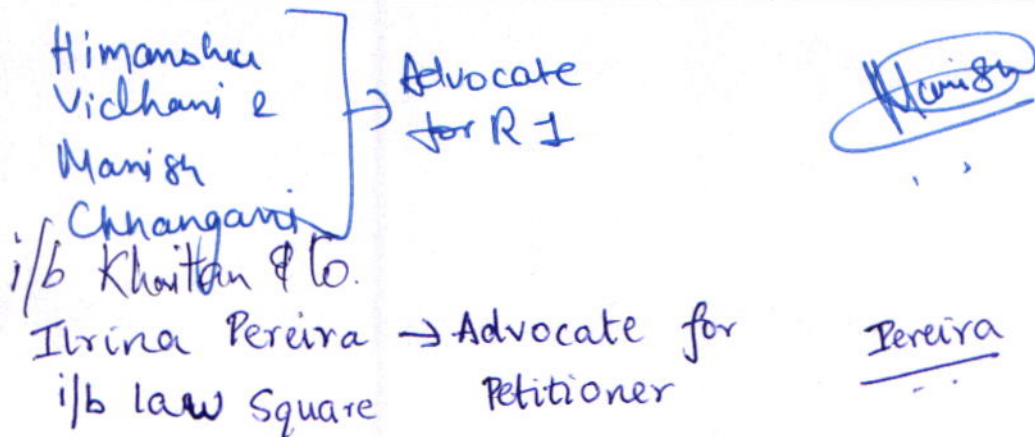 Himanshu
Vidhani &
Manish
Chhangani
→ Advocate
for R 1
Manish
i/b Khaitan & Co.
Ilrina Pereira → Advocate for
Petitioner
i/b law Square
Pereira